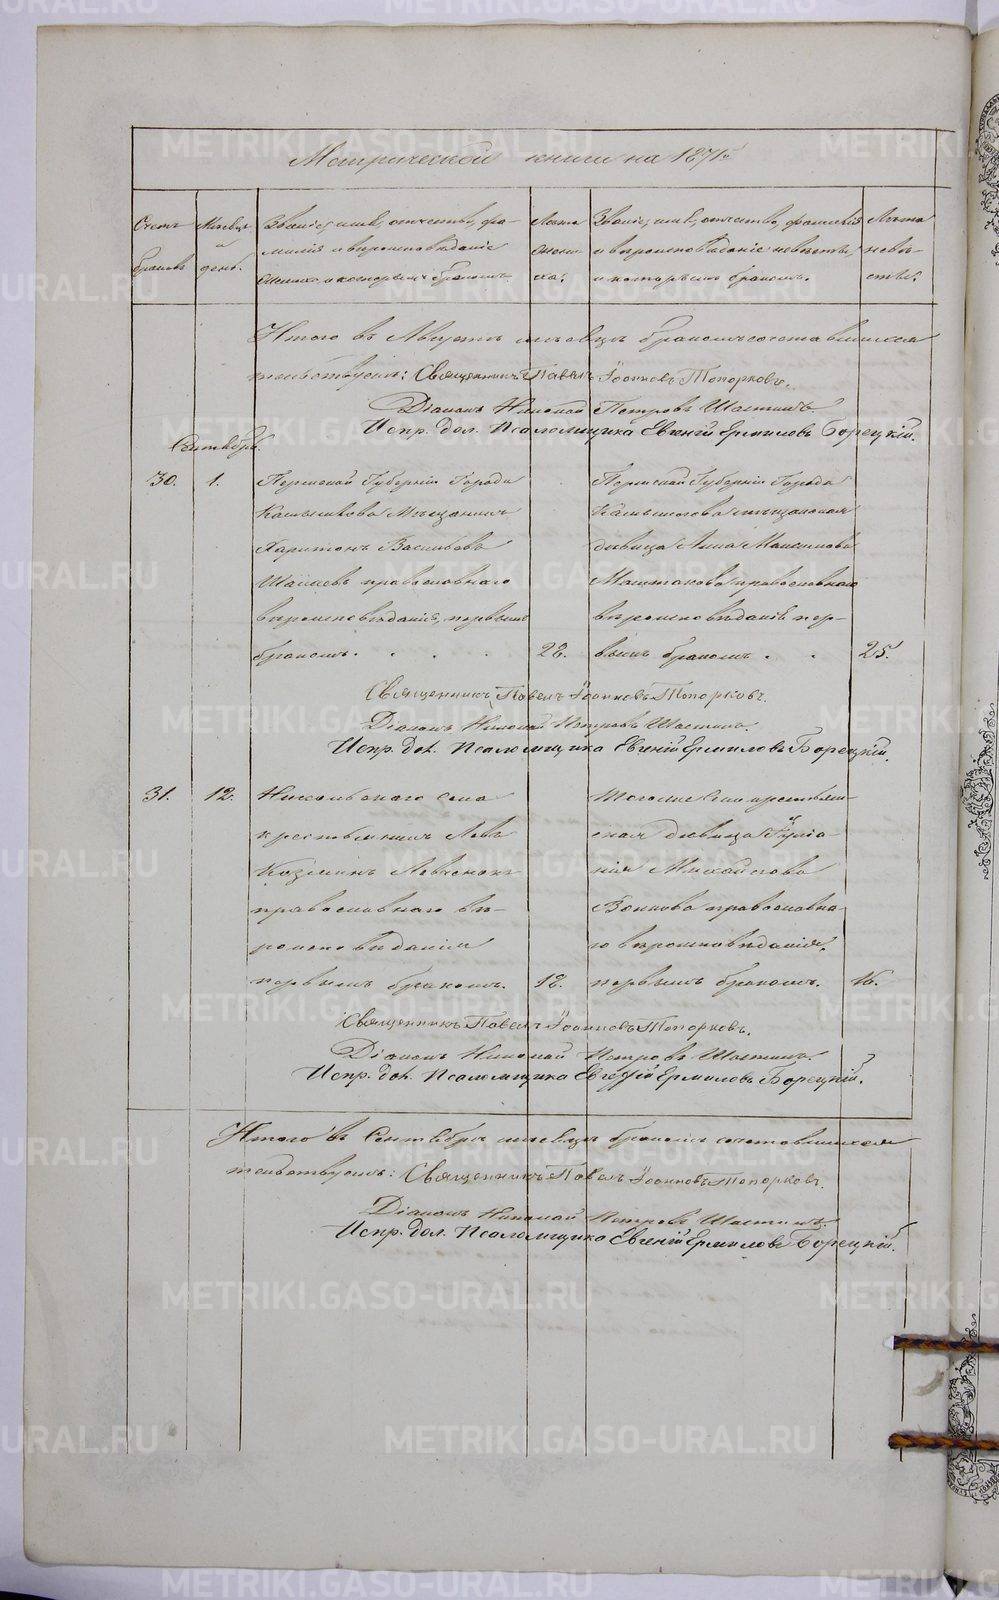 Метрической книги на 1871 г.
Счетъ браковъ
Мѣсяцъ и день.
Званіе, имя, отчество, фамилія и вѣроисповѣданіе жениха, и которымъ бракомъ.
Лѣта жениха.
Званіе, имя, отчество, фамилія и вѣроисповѣданіе невѣсты, и которымъ бракомъ.
Лѣта невѣсты.
Итого въ Августѣ мѣсяцѣ бракомъ сочетавшихся
Священникъ Павелъ Іоанновъ Топорковъ.
Діаконъ Николай Петровъ
Испр. дол. Псаломщика Евгеній Ермиловъ Борецкій.
Сентябрь.
30.
1.
Пермской Губерніи Города
Камышлова Мѣщанинъ
Харитонъ Васильевъ
православнаго
вѣроисповѣданія, первымъ
бракомъ.
22.
Пермской Губерніи Города
Камышлова мѣщанская
дѣвица Анна Максимова
православнаго
вѣроисповѣданія пер-
вымъ бракомъ
25.
Священникъ Павелъ Іоанновъ Топорковъ.
Діаконъ Николай Петровъ
Испр. дол. Псаломщика Евгеній Ермиловъ Борецкій.
31.
12.
Никольскаго села
крестьянинъ Левъ
Козминъ
православнаго вѣ-
роисповѣданія
первымъ бракомъ.
18.
Тогоже села крестьян-
ская дѣвица Іуліа-
нія Михайлова
православна-
го вѣроисповѣданія,
первымъ бракомъ.
16.
Священникъ Павелъ Іоанновъ Топорковъ.
Діаконъ Николай Петровъ
Испр. дол. Псаломщика Евгеній Ермиловъ Борецкій.
Итого въ Сентябрѣ мѣсяцѣ бракомъ сочетавшихся
Священникъ Павелъ Іоанновъ Топорковъ.
Діаконъ Николай Петровъ
Испр. дол. Псаломщика Евгеній Ермиловъ Борецкій.
METRIKI.GASO-URAL.RU